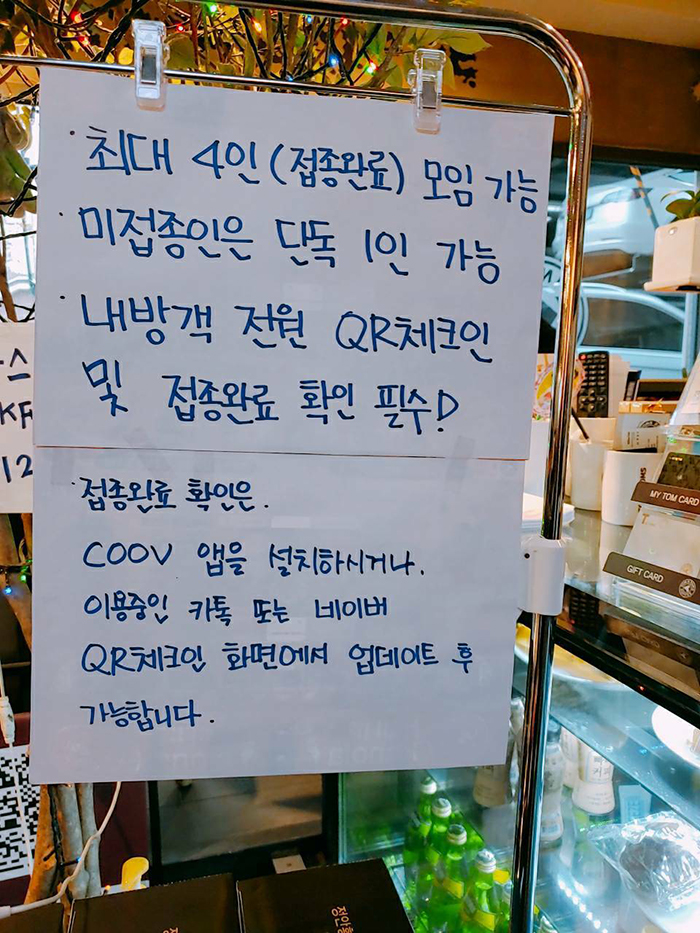 · 최대 4인 (접종완료) 모임 가능
· 미접종인은 단독 1인 가능
· 내방객 전원 QR체크인
및 접종완료 확인 필수!
· 접종완료 확인은.
COOV 앱을 설치하시거나.
이용중인 카톡 또는 네이버
QR체크인 화면에서 업데이트 후
가능합니다.
스
KF
12
MY TOM CARD
GIFT CARD